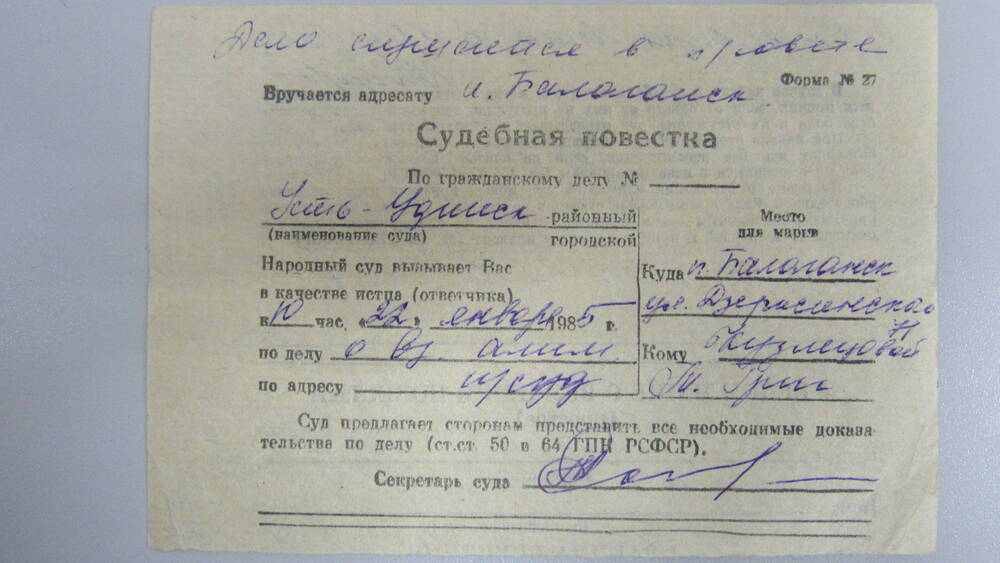 Дело слушается в п/совете
Форма № 27
Вручается адресату п. Балаганск
Судебная повестка
По гражданскому делу №
Усть-Удинск районный
(наименование суда) городской
Место
для марки
Народный суд вызывает Вас
в качестве истца (ответчика)
к 10 час. «22» января 1985 г.
по делу о вз. алим.
по адресу н/суд
Куда п. Балаганск
ул. Дзержинская
Кому Кузнецовой
Суд предлагает сторонам представить все необходимые доказа-
тельства по делу (ст.ст. 50 и 64 ГПК РСФСР).
Секретарь суда